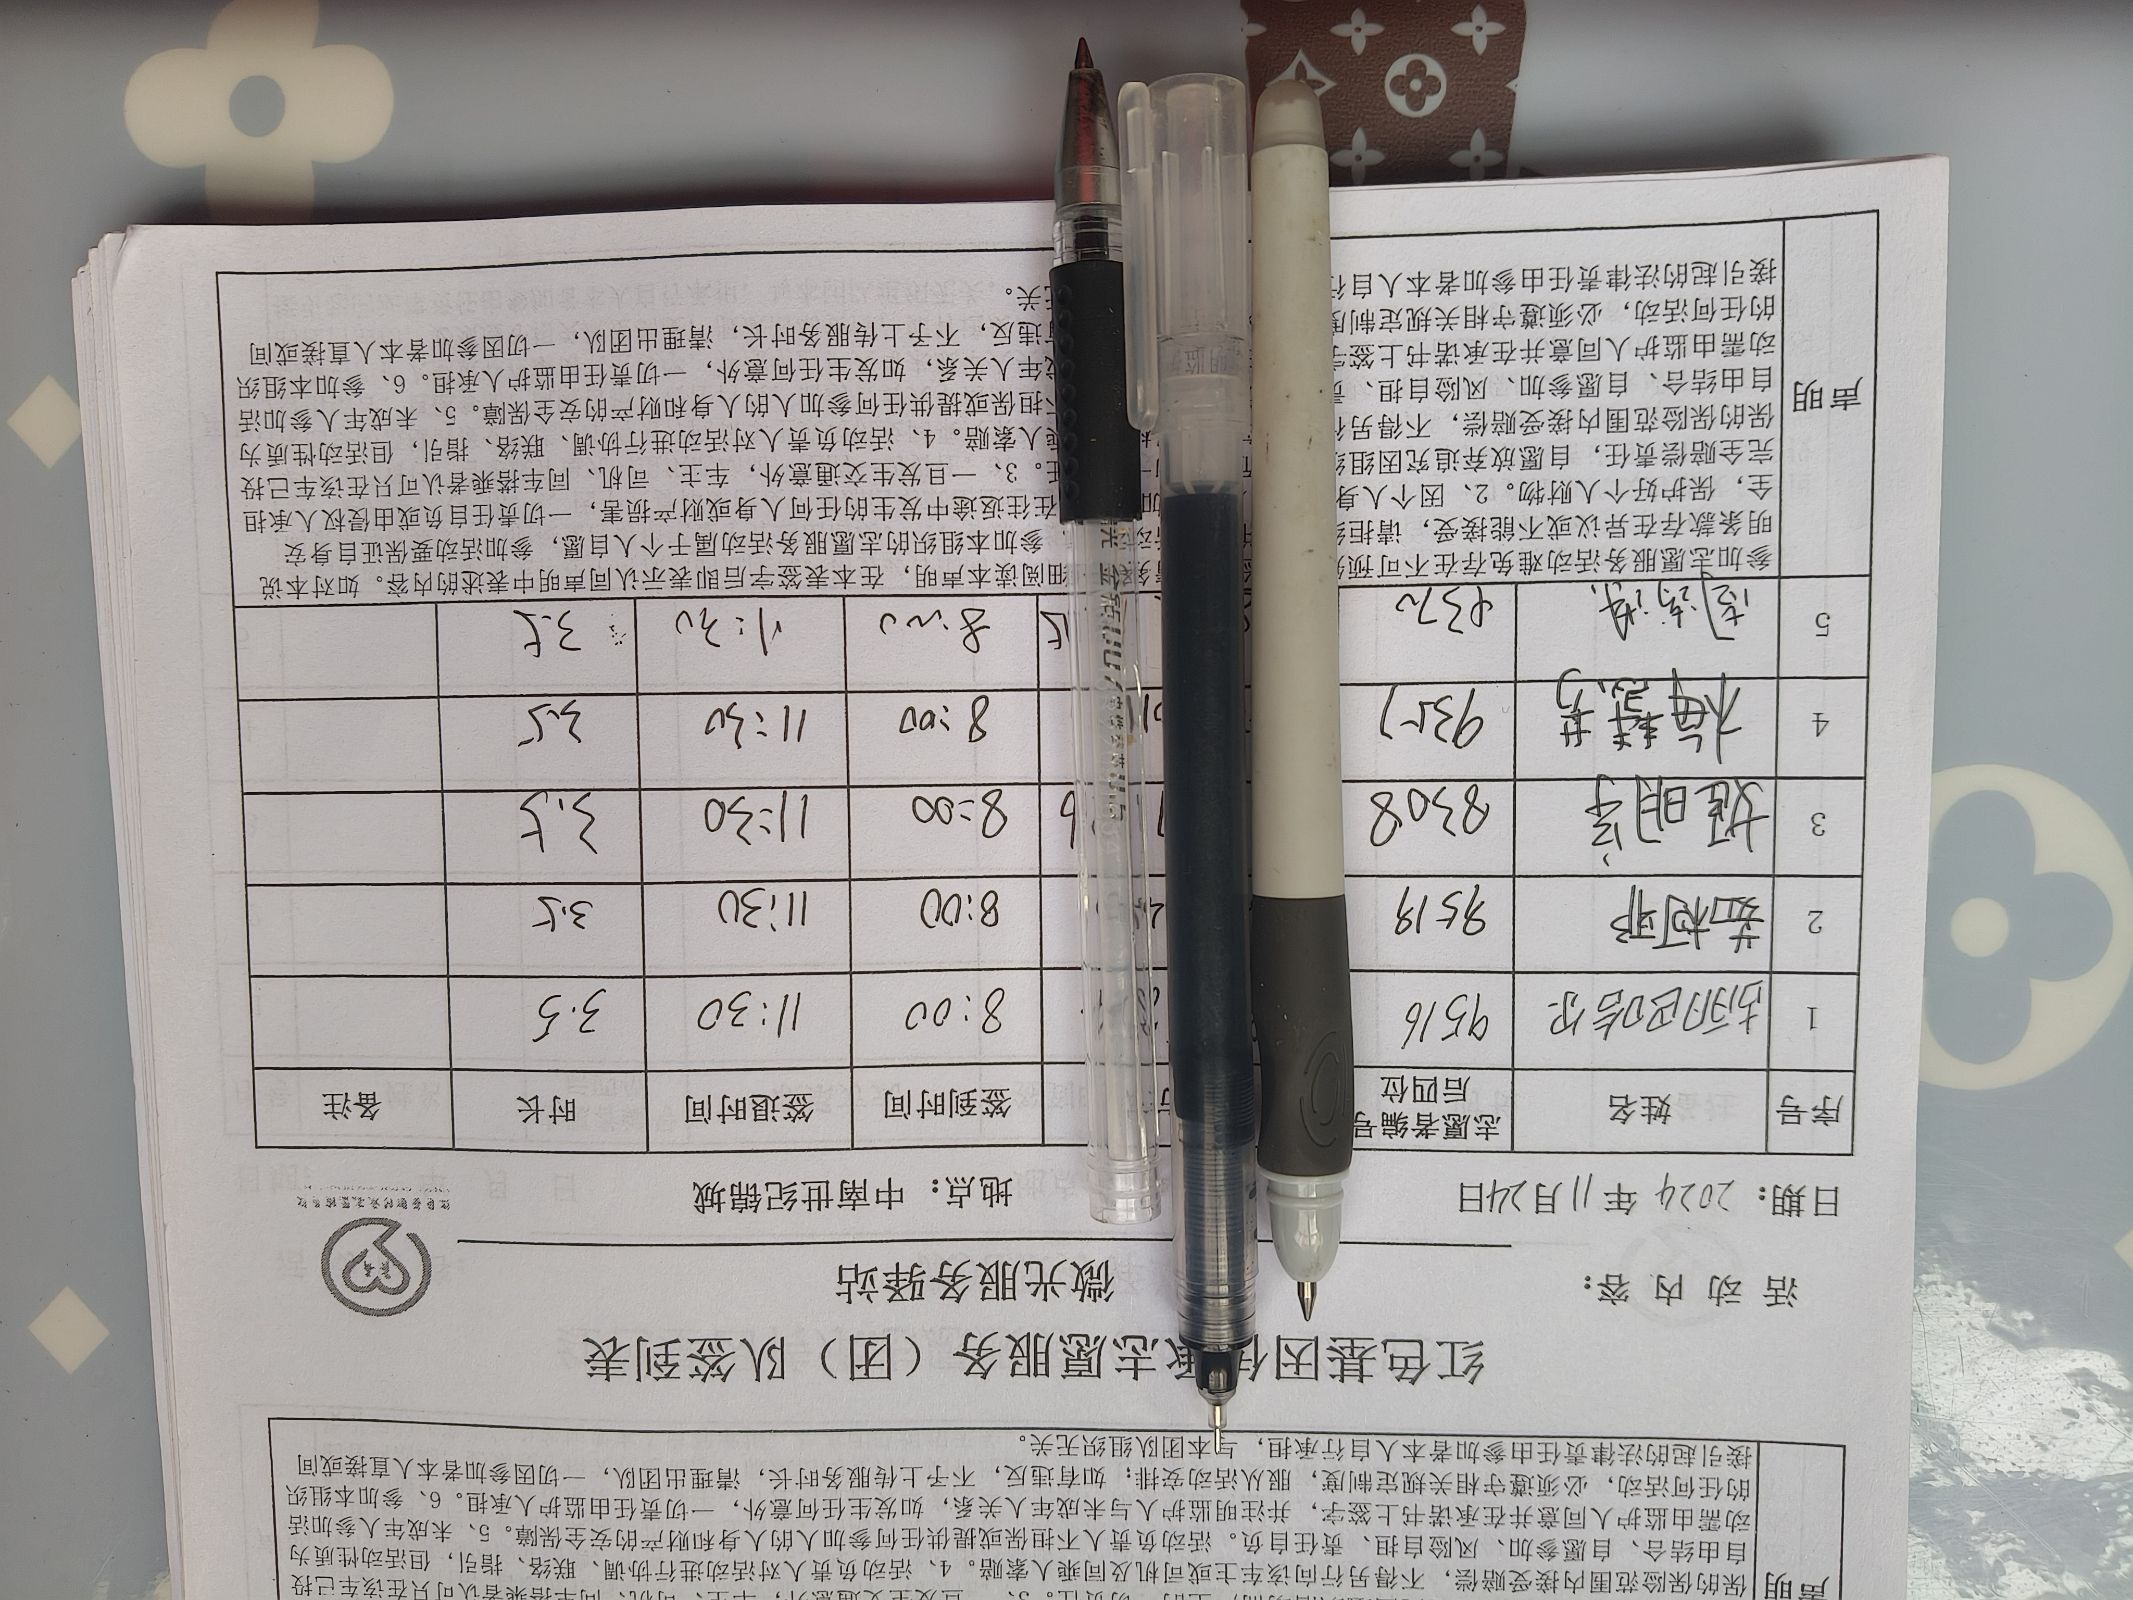 红色基因传承志愿服务（团）队签到表
活动内容：
微光服务驿站
日期：2024年11月24日
地点：中南世纪锦城
序号 姓名 志愿者编号后四位 签到时间 签退时间 时长 备注
1 胡巴哈尔 9516 8:00 11:30 3.5
2 茹柯耶 9519 8:00 11:30 3.5
3 姬明 8308 8:00 11:30 3.5
4 9357 8:00 11:30 3.5
5 8:00 11:30 3.5
声明
参加志愿服务活动难免存在不可预 细阅读本声明，在本表签字后即表示认同声明中表述的内容。如对本说
明条款存在异议或不能接受，请拒 参加本组织的志愿服务活动属于个人自愿，参加活动要保证自身安
全，保护好个人财物。2、因个人身 在往返途中发生的任何人身或财产损害，一切责任自负或由侵权人承担
完全赔偿责任，自愿放弃追究因组 任。3、一旦发生交通意外，车主、司机、同车搭乘者认可只在该车已投
保的保险范围内接受赔偿，不得另 人索赔。4、活动负责人对活动进行协调、联络、指引，但活动性质为
自由结合、自愿参加、风险自担、责 担保或提供任何参加人的人身和财产的安全保障。5、未成年人参加活
动需由监护人同意并在承诺书上签字 成年人关系，如发生任何意外，一切责任由监护人承担。6、参加本组织
的任何活动，必须遵守相关规定制度 有违反，不予上传服务时长，清理出团队，一切因参加者本人直接或间
接引起的法律责任由参加者本人自行 无关。
声明
保的保险范围内接受赔偿，不得另行向该车主或司机及同乘人索赔。4、活动负责人对活动进行协调、联络、指引，但活动性质为
自由结合、自愿参加、风险自担、责任自负。活动负责人不担保或提供任何参加人的人身和财产的安全保障。5、未成年人参加活
动需由监护人同意并在承诺书上签字，并注明监护人与未成年人关系，如发生任何意外，一切责任由监护人承担。6、参加本组织
的任何活动，必须遵守相关规定制度，服从活动安排；如有违反，不予上传服务时长，清理出团队，一切因参加者本人直接或间
接引起的法律责任由参加者本人自行承担，与本团队组织无关。